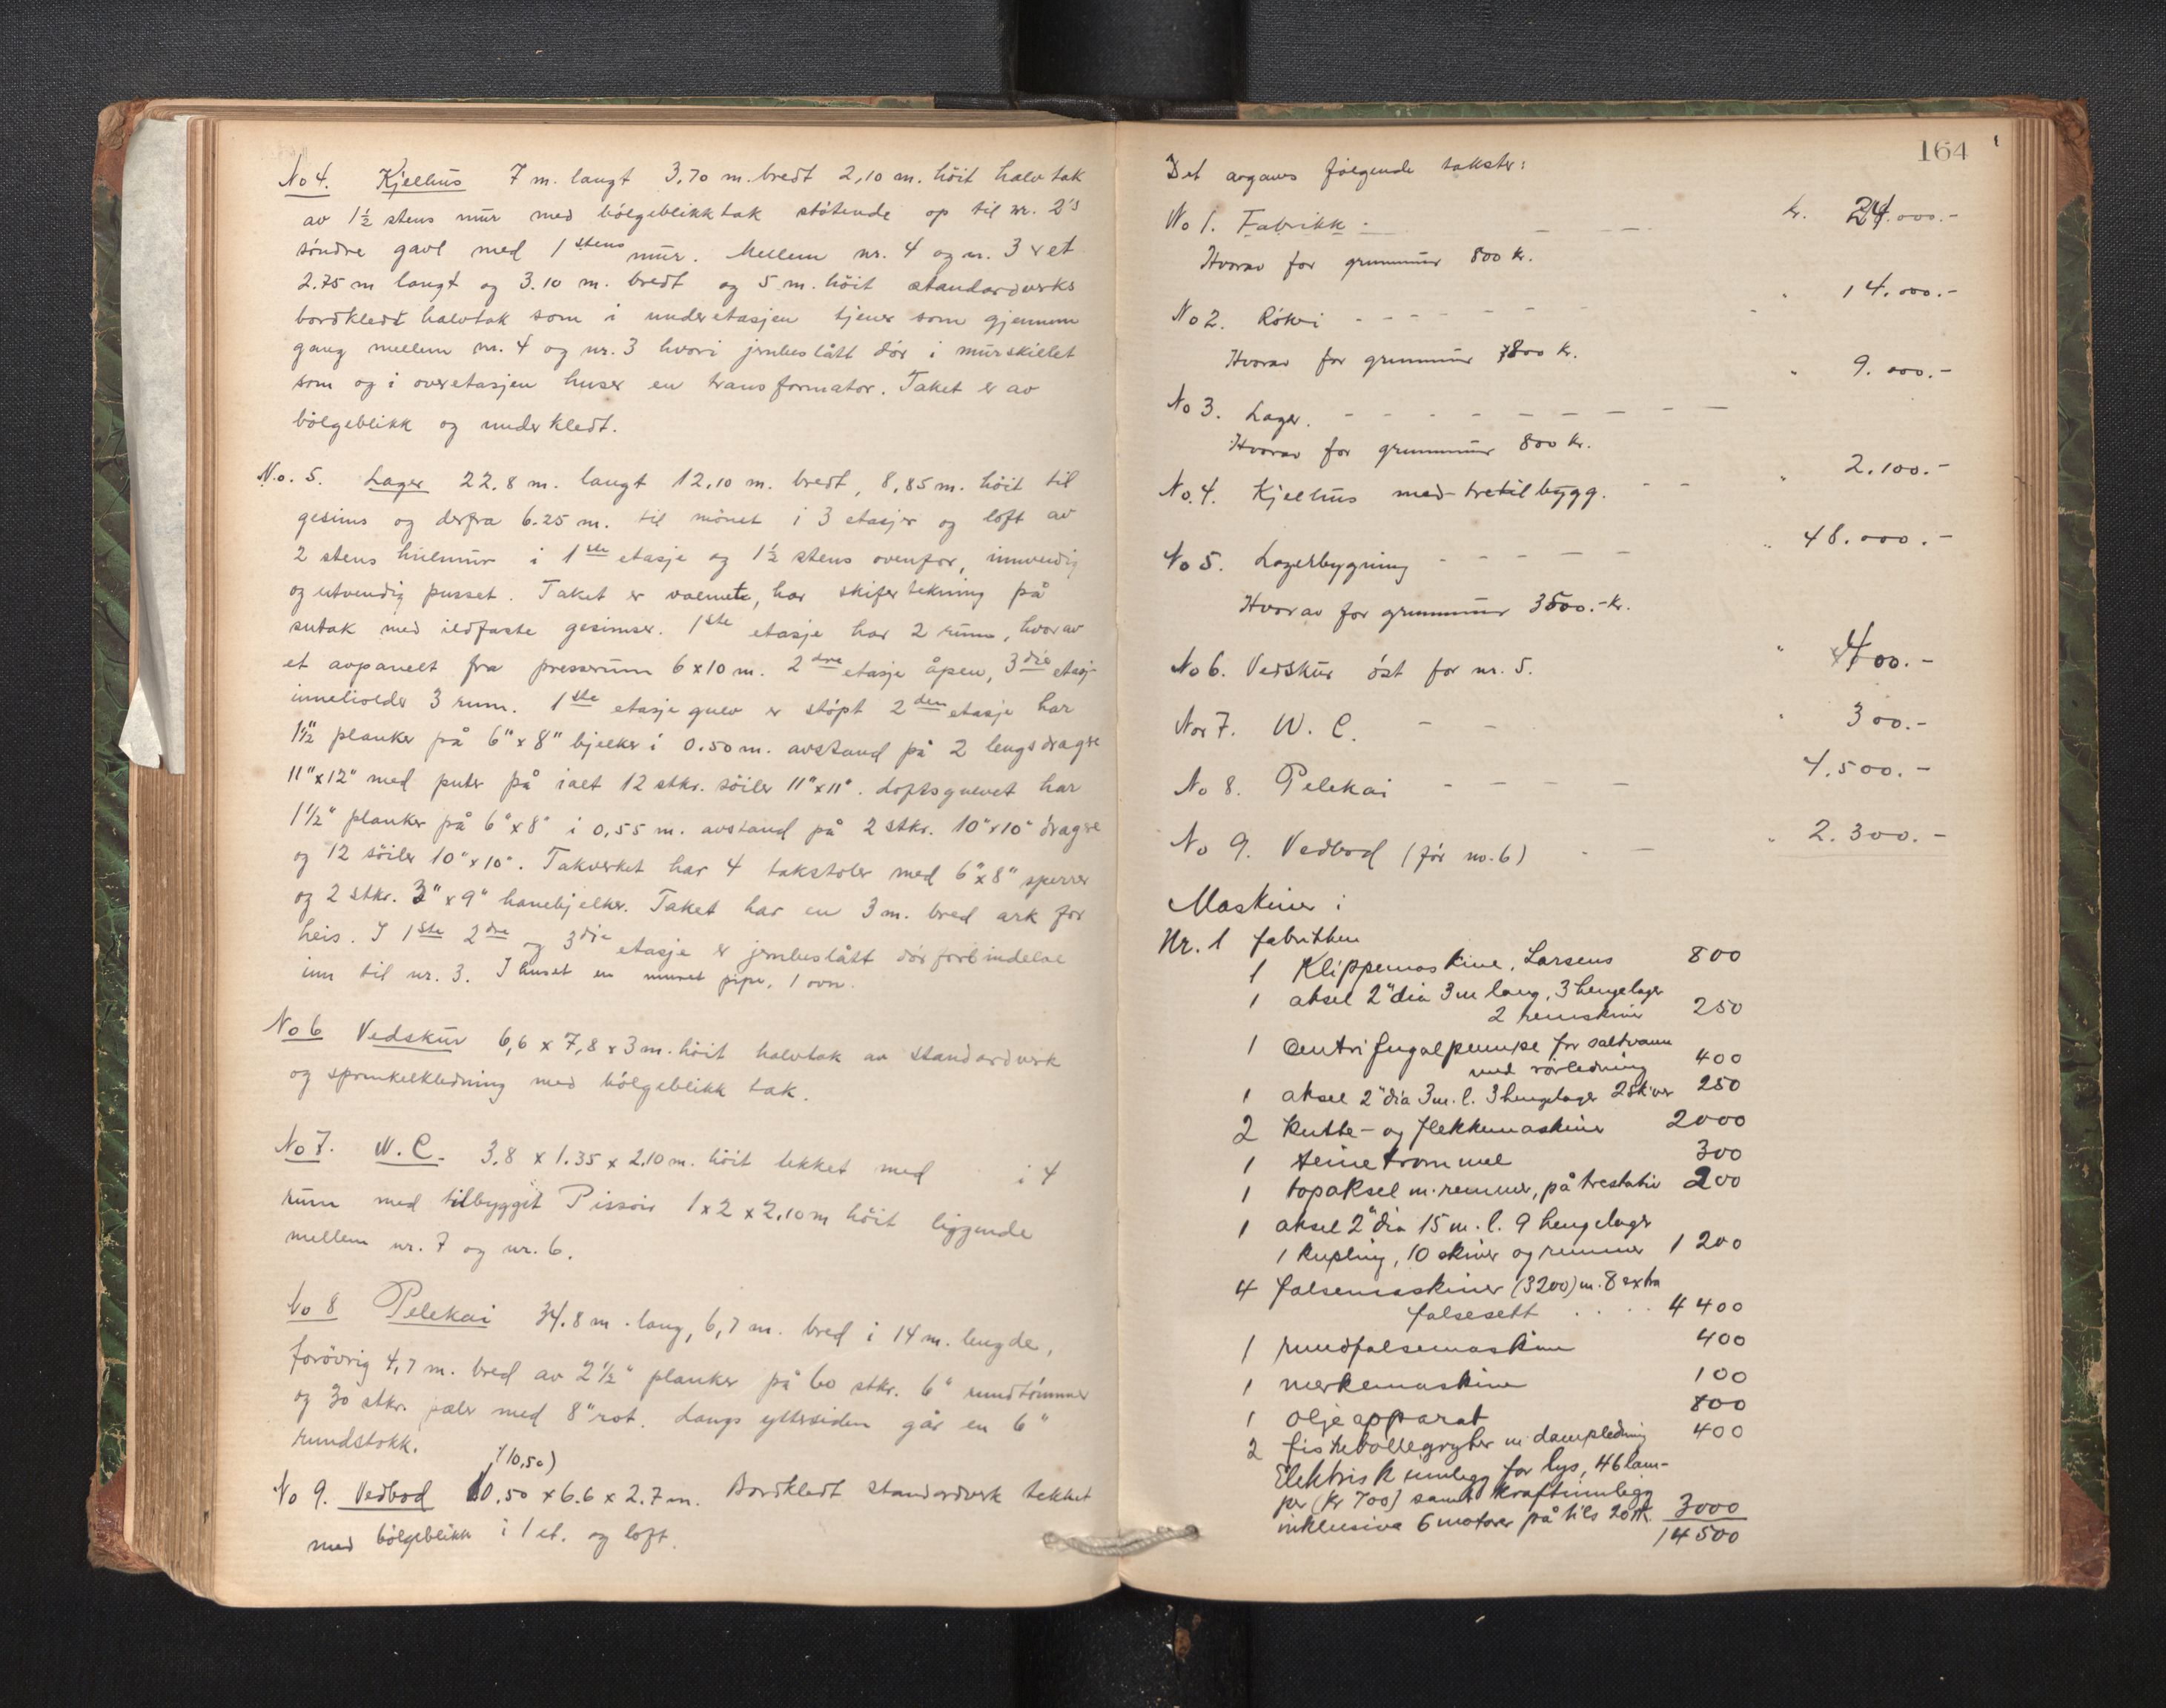 No 4. Kjelhus 7 m. langt 3,70 m. bredt 2,10 m. höit halvtak
av 1½ stens mur med bölgeblikktak stötende op til nr. 2's
söndre gavl med 1 stens mur. Mellem nr. 4 og nr. 3 er et
2.75 m langt og 3.10 m. bredt og 5 m. höit standardverks
bordkledt halvtak som i underetasjen tjener som gjennem
gang mellem nr. 4 og nr. 3 hvori jernbeslått dör i murskillet
som og i overetasjen huser en transformator. Taket er av
bölgeblikk og underkledt.
No. 5. Lager 22,8 m. langt 12,10 m. bredt, 8,85 m. höit til
gesims og derfra 6.25 m. til mönet i 3 etasjer og loft av
2 stens hulmur i 1ste etasje og 1½ stens ovenfor, innvendig
og utvendig pusset. Taket er valmet, har skifertekning på
sutak med ildfaste gesimser. 1ste etasje har 2 rum, hvorav
et avpanelt fra presserum 6x10 m. 2dre etasje åpen, 3die etasje
inneholder 3 rum. 1ste etasje gulv er stöpt 2den etasje har
1½" planker på 6"x8" bjelker i 0.50 m. avstand på 2 lengsdragre
11"x12" med puter på ialt 12 stkr. söiler 11"x11". Loftsgulvet har
1½" planker på 6"x8" i 0,55 m. avstand på 2 stkr. 10"x10" dragre
og 12 söiler 10"x10". Takverket har 4 takstoler med 6"x8" sperrer
og 2 stkr. 3"x9" hanebjelker. Taket har en 3 m. bred ark for
heis. I 1ste 2dre og 3die etasje er jernbeslått dörforbindelse
inn til nr. 3. I huset en muret pipe, 1 ovn.
No 6 Vedskur 6,6 x 7,8 x 3 m. höit halvtak av standardverk
og sprinkelkledning med bölgeblikk tak.
No 7. W.C. 3,8 x 1.35 x 2,10 m. höit tekket med i 4
rum med tilbygget Pissoir 1 x 2 x 2,10 m höit liggende
mellem nr. 7 og nr. 6.
No 8 Pelekai 34.8 m. lang, 6,7 m. bred i 14 m. lengde,
forövrig 4,7 m. bred av 2½" planker på 60 stkr. 6" rundtömmer
og 30 stkr. pæler med 8" rot. Langs yttersiden går en 6"
rundstokk.
(10,50)
No 9. Vedbod 10,50 x 6.6 x 2.7 m. Bordkledt standardverk tekket
med bölgeblikk i 1 et. og loft.
164
Det avgaves fölgende takster:
No 1. Fabrikk - - - kr. 24.000.-
Hvorav for grunnmur 800 kr.
No 2. Rökeri - - - - - - " 14.000.-
Hvorav for grunnmur 800 kr.
No 3. Lager. - - - - - - - - " 9.000.-
Hvorav for grunnmur 800 kr.
No. 4. Kjelhus med tretilbygg. - - " 2.100.-
No 5. Lagerbygning - - - - - " 48.000.-
Hvorav for grunnmur 3500.- kr.
No 6. Vedskur öst for nr. 5. " 400.-
No 7. W. C. - - " 300.-
No 8. Pelekai - - - - 4.500.-
No 9. Vedbod (för no. 6) - - " 2.300.-
Maskiner i
Nr. 1 fabrikken
1 Klippemaskine, Larsens 800
1 aksel 2" dia 3 m lang, 3 hengelager
2 remskiver 250
1 Centrifugalpumpe for saltvann
med rörledning 400
1 aksel 2" dia 3 m. l. 3 hengelager 2 skiver 250
2 Kutte- og flekkemaskiner 2000
1 seinetrommel 300
1 topaksel m. remmer, på trestativ 200
1 aksel 2" dia 15 m. l. 9 hengelager
1 kupling, 10 skiver og remmer 1200
4 falsemaskiner (3200) m. 8 extra
falsesett . . . . 4400
1 rundfalsemaskin 400
1 merkemaskine 100
1 oljeapparat 800
2 fiskebollegryter m dampledning 400
Elektrisk innlegg for lys, 46 lam-
per (kr 700) samt kraftinnlegg
inklusive 6 motorer på tils 20 HK. 3000
14500